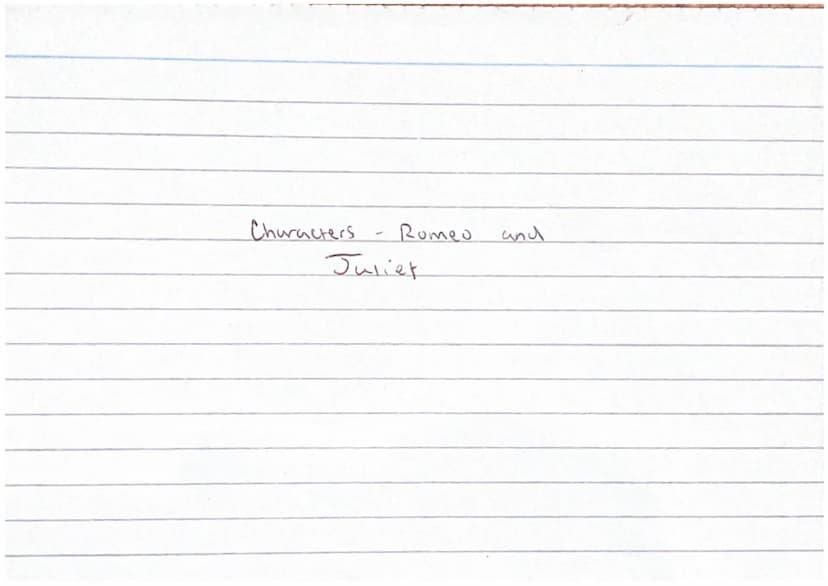 Characters - Romeo and
Juliet